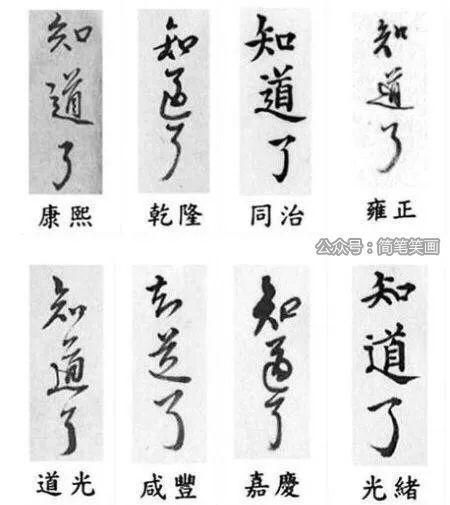 知道了
知道了
知道了
知道了
康熙
乾隆
同治
雍正
公众号：简笔笑画
知道了
知道了
知道了
知道了
道光
咸豐
嘉慶
光緒